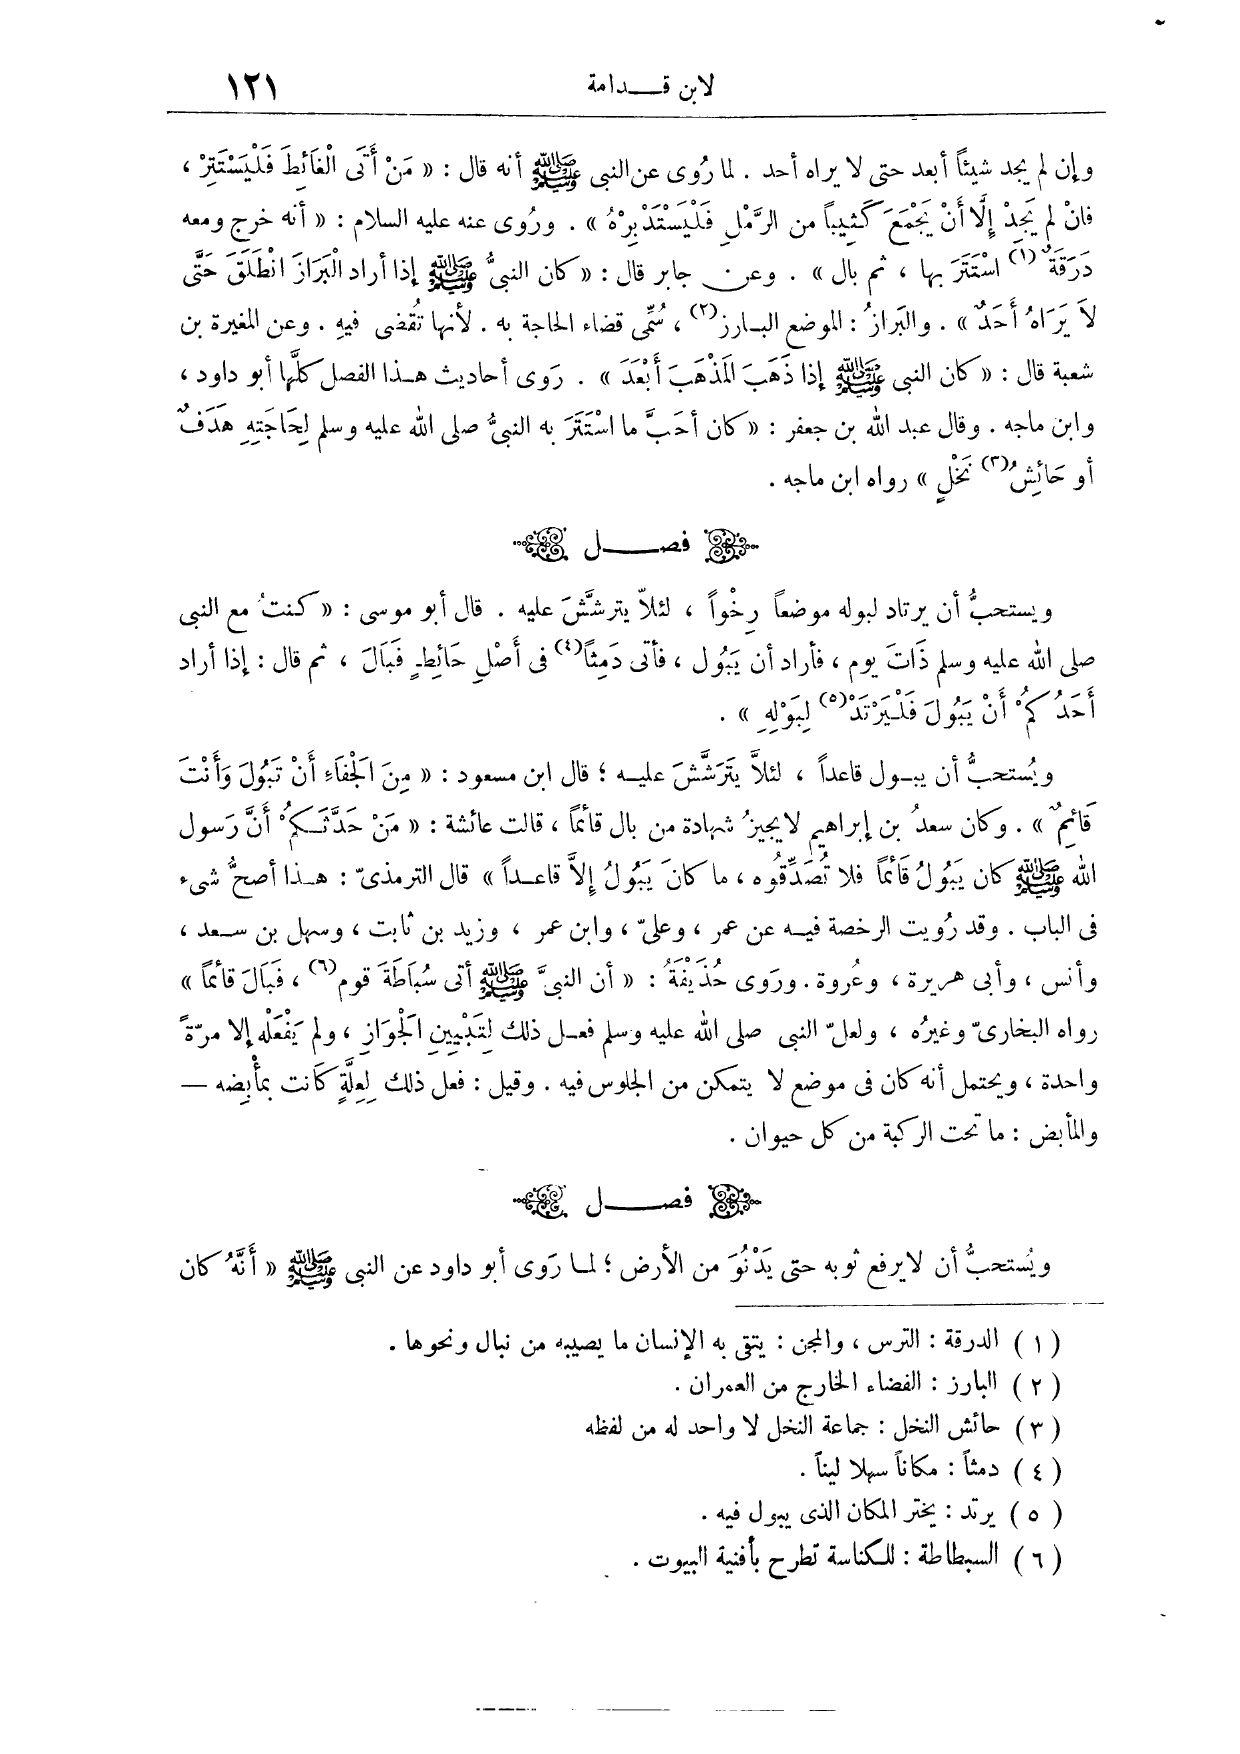 لابن قـــدامة ١٢١
وإن لم يجد شيئاً أبعد حتى لا يراه أحد . لما رُوى عن النبى ﷺ أنه قال : « مَنْ أَتَى الْغَائِطَ فَلْيَسْتَتِرْ ،
فانْ لم يَجِدْ إِلَّا أَنْ يَجْمَعَ كَثِيباً من الرَّمْلِ فَلْيَسْتَدْبِرْهُ » . ورُوى عنه عليه السلام : « أنه خرج ومعه
دَرَقَةٌ (١) اسْتَتَرَ بها ، ثم بال » . وعن جابر قال : « كان النبىُّ ﷺ إذا أراد الْبَرَازَ انْطَلَقَ حَتَّى
لاَ يَرَاهُ أَحَدٌ » . والبَرازُ : الموضع البـارز (٢) ، سُمِّى قضاء الحاجة به . لأنها تُقضى فيهِ . وعن المغيرة بن
شعبة قال : « كان النبى ﷺ إذا ذَهَبَ المَذْهَبَ أَبْعَدَ » . رَوى أحاديث هـذا الفصل كلَّها أبو داود ،
وابن ماجه . وقال عبد الله بن جعفر : « كان أحَبَّ ما اسْتَتَرَ به النبىُّ صلى الله عليه وسلم لِحَاجَتِهِ هَدَفٌ
أو حَائِشُ (٣) نَخْلٍ » رواه ابن ماجه .
فصــــل
ويستحبُّ أن يرتاد لبوله موضعاً رِخْواً ، لئلاّ يترشَّشَ عليه . قال أبو موسى : « كنتُ مع النبى
صلى الله عليه وسلم ذَاتَ يوم ، فأراد أن يَبُول ، فأتى دَمِثاً (٤) فى أَصْلِ حَائِطٍ فَبَالَ ، ثم قال : إذا أراد
أَحَدُكُمْ أَنْ يَبُولَ فَلْيَرْتَدْ (٥) لِبَوْلِهِ » .
ويُستحبُّ أن يبـول قاعداً ، لئلاَّ يَتَرَشَّشَ عليـه ؛ قال ابن مسعود : « مِنَ الْجْفَاءِ أَنْ تَبُولَ وَأَنْتَ
قَائِمٌ » . وكان سعدُ بن إبراهيم لايجيزُ شهادة من بال قائماً ، قالت عائشة : « مَنْ حَدَّثَـكُمْ أَنَّ رَسول
الله ﷺ كان يَبُولُ قَائماً فلا تُصَدِّقُوه ، ما كانَ يَبُولُ إِلاَّ قاعـداً » قال الترمذىّ : هـذا أصحُّ شىء
فى الباب . وقد رُويت الرخصة فيـه عن عمر ، وعلىّ ، وابن عمر ، وزيد بن ثابت ، وسهل بن سـعد ،
وأنس ، وأبى هريرة ، وعُروة . ورَوى حُذَيْفَةُ : « أن النبىَّ ﷺ أتى سُبَاطَةَ قوم (٦) ، فَبَالَ قائماً »
رواه البخارىّ وغيرُه ، ولعلّ النبى صلى الله عليه وسلم فعـل ذلك لِتَبْيِينِ الْجَوَازِ ، ولم يَفْعَلْه إلا مرّةً
واحدة ، ويحتمل أنه كان فى موضع لا يتمكن من الجلوس فيه . وقيل : فعل ذلك لِعِلَّةٍ كَانت بمأْبِضه —
والمأبض : ما تحت الركبة من كل حيوان .
فصــــل
ويُستحبُّ أن لايرفع ثوبه حتى يَدْنُوَ من الأرض ؛ لمـا رَوى أبو داود عن النبى ﷺ « أَنَّهُ كان
( ١ ) الدرقة : الترس ، والمجن : يتقى به الإنسان ما يصيبه من نبال ونحوها .
( ٢ ) البارز : الفضاء الخارج من العمران .
( ٣ ) حائش النخل : جماعة النخل لا واحد له من لفظه
( ٤ ) دمثاً : مكاناً سهلا ليناً .
( ٥ ) يرتد : يختر المكان الذى يبول فيه .
( ٦ ) السبطاطة : للكناسة تطرح بأفنية البيوت .